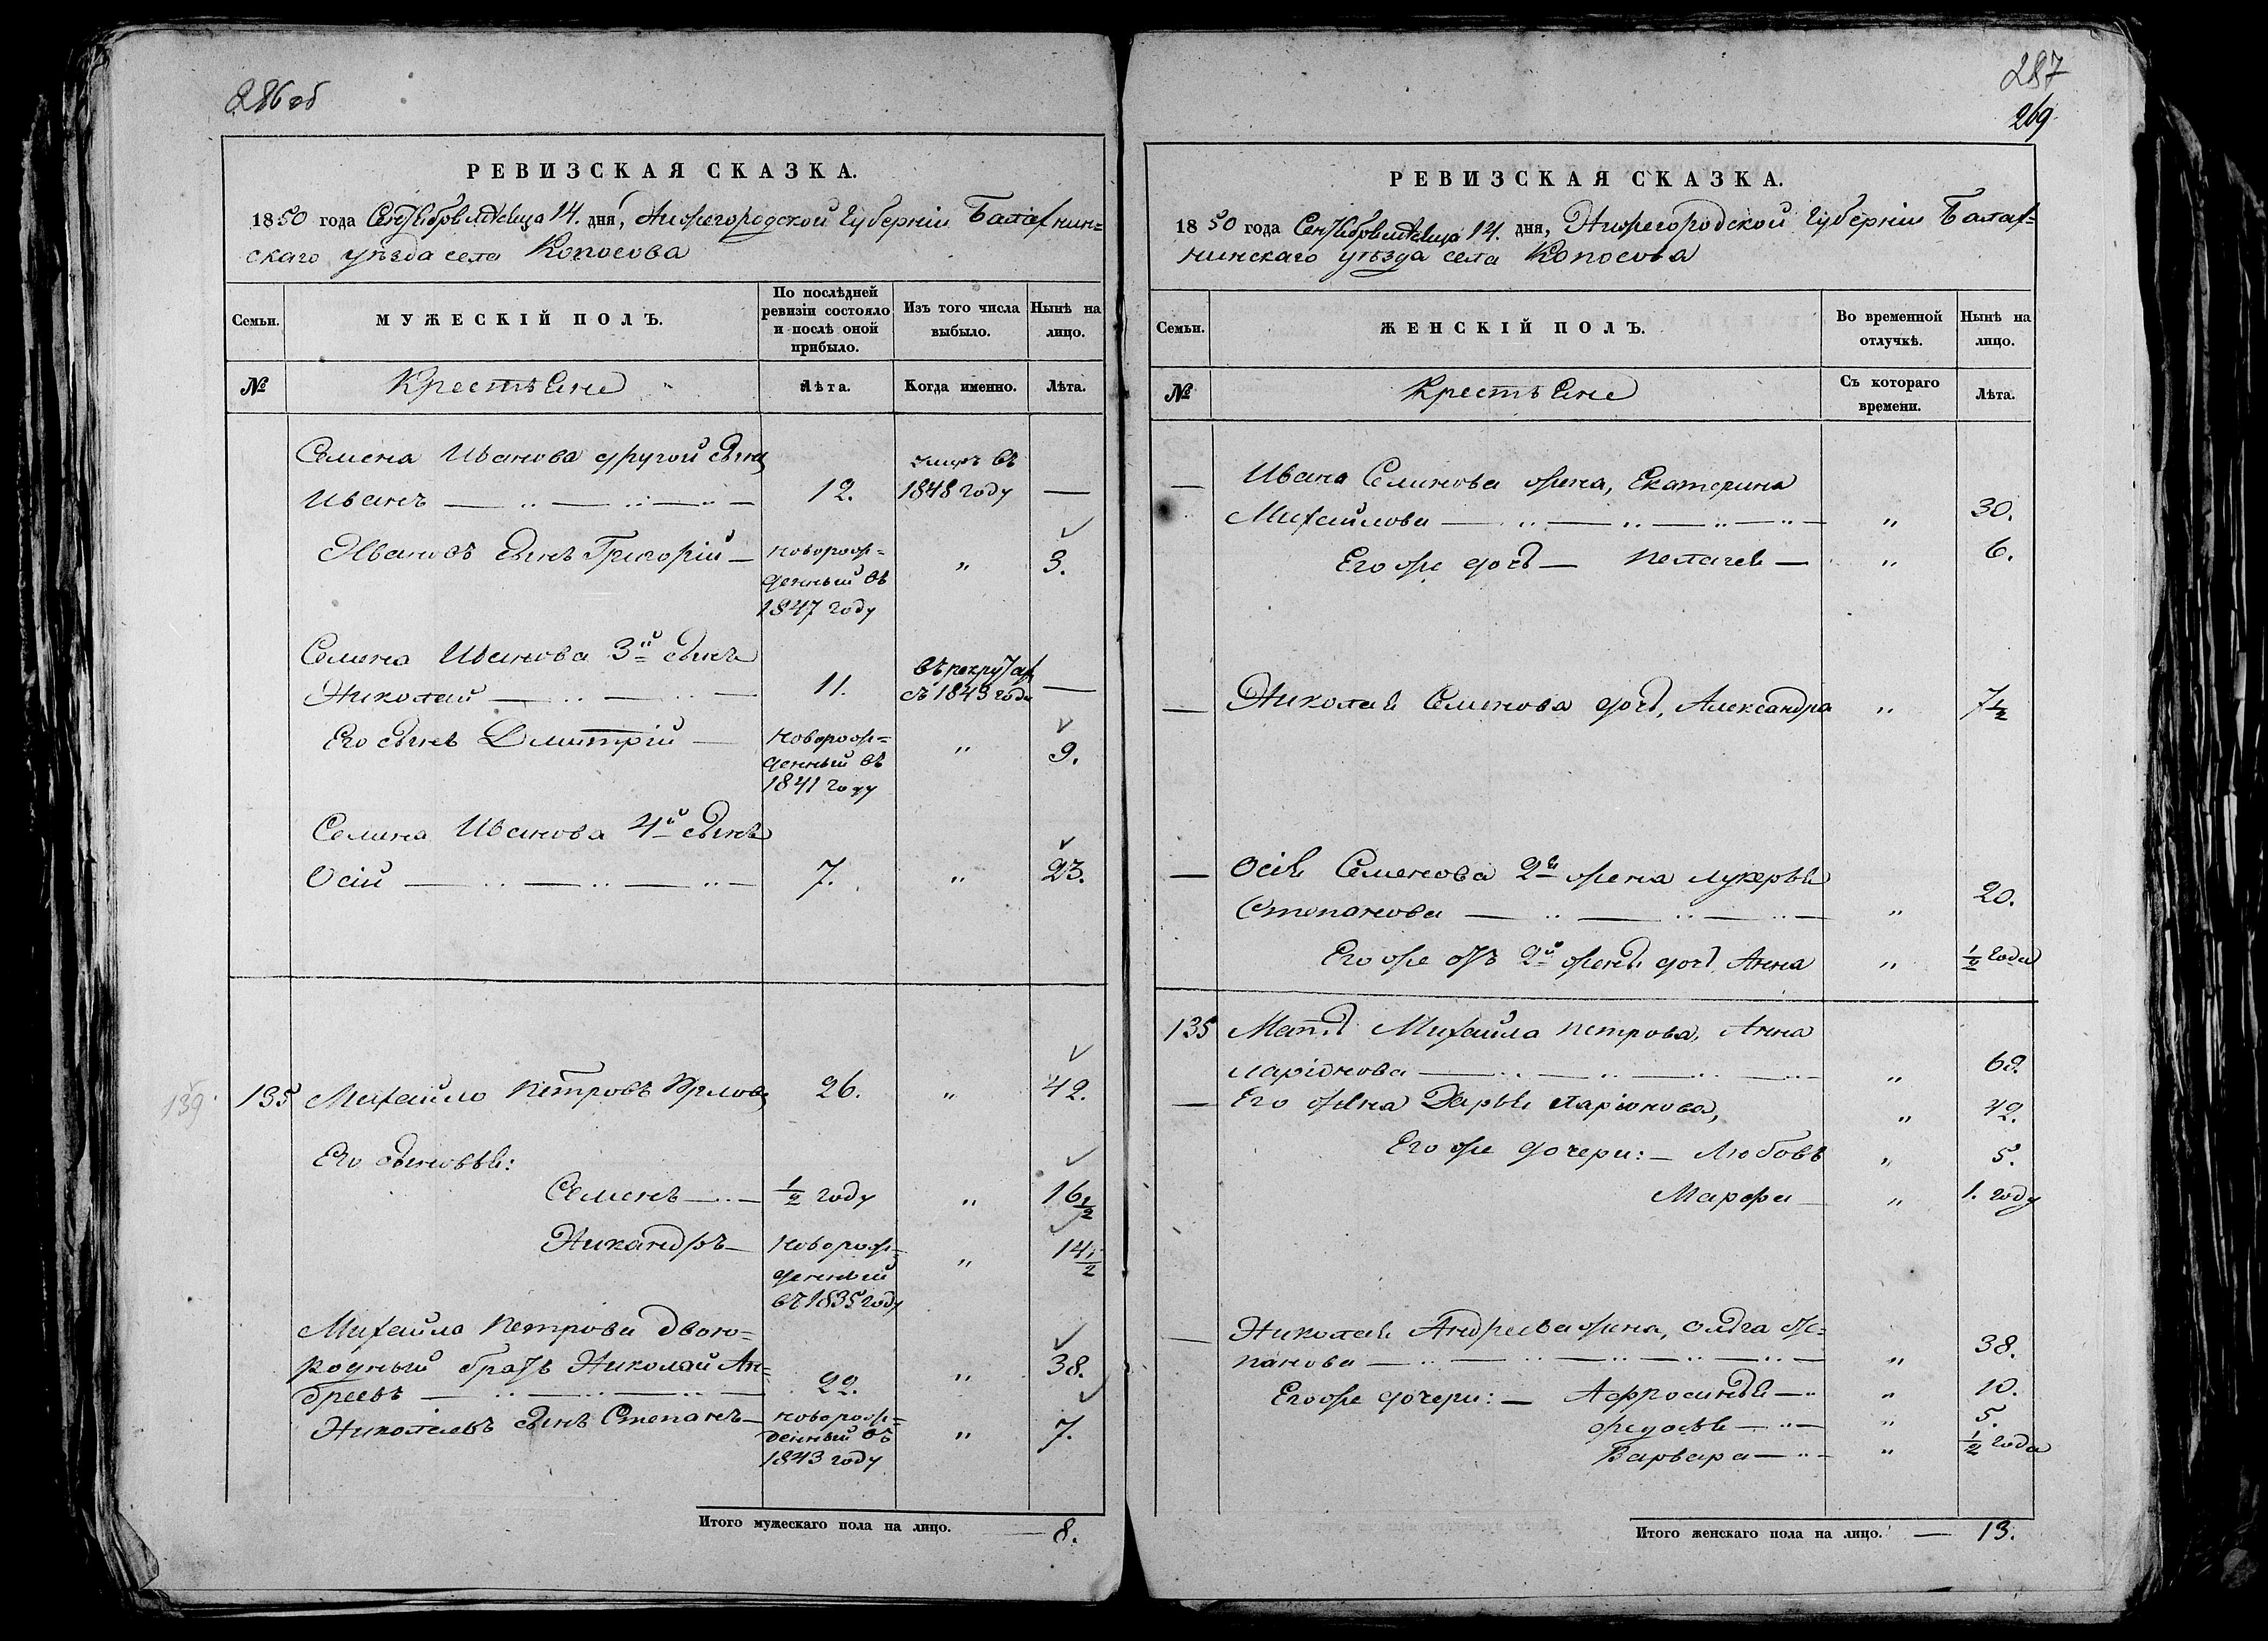 286об
РЕВИЗСКАЯ СКАЗКА.
1850 года Сентября месяца 14. дня, Нижегородской Губернiи Балахнин=
скаго уезда села Копосова
Семьи.
МУЖЕСКIЙ ПОЛЪ.
По послѣдней ревизiи состояло и послѣ оной прибыло.
Изъ того числа выбыло.
Нынѣ на лицо.
№
Крестьяне
Лѣта.
Когда именно.
Лѣта.
Семена Иванова другой сынъ
умеръ въ
Иванъ 12. 1848 году —
Ивановъ сынъ Григорiй — новорож= " 3.
денный въ
1847 году
Семена Иванова 3й сынъ
въ рекрутах
Николай 11. съ 1843 года —
Его сынъ Дмитрiй — новорож= " 9.
денный въ
1841 году
Семена Иванова 4й сынъ
Осiй 7. " 23.
139
135 Михайло Петровъ 26. " 42.
Его сыновья:
Семенъ 1/2 году " 16 1/2
Никандръ — новорож= " 14 1/2
денный
въ 1835 году
Михайла Петрова двою=
родный братъ Николай Ан= 38.
дреевъ 22. "
Николаевъ сынъ Степанъ — новорож= " 7.
денный въ
1843 году
Итого мужескаго пола на лицо. — 8.
287
269
РЕВИЗСКАЯ СКАЗКА.
1850 года Сентября месяца 14. дня, Нижегородской Губернiи Балах=
нинскаго уѣзда села Копосова
Семьи.
ЖЕНСКIЙ ПОЛЪ.
Во временной отлучкѣ.
Нынѣ на лицо.
№
Крестьяне
Съ котораго времени.
Лѣта.
— Ивана Семенова жена, Екатерина
Михайлова " 30.
Его же дочь — Пелагея — " 6.
— Николая Семенова дочь, Александра " 7 1/2
— Осiя Семенова 2я жена Лукерья
Степанова " 20.
Его же отъ 2й жены дочь, Анна " 1/2 года
135 Мать Михайла Петрова, Анна
Ларiонова "
— Его жена Дарья Ларiонова, " 42.
Его же дочери: — Любовь " 5.
Марфа — " 1. году
— Николая Андреева жена, Ольга Же=
панова " 38.
Его же дочери: — Афросинья — " 10.
Федосья — " 5.
Варвара — " 1/2 года
Итого женскаго пола на лицо. — 13.